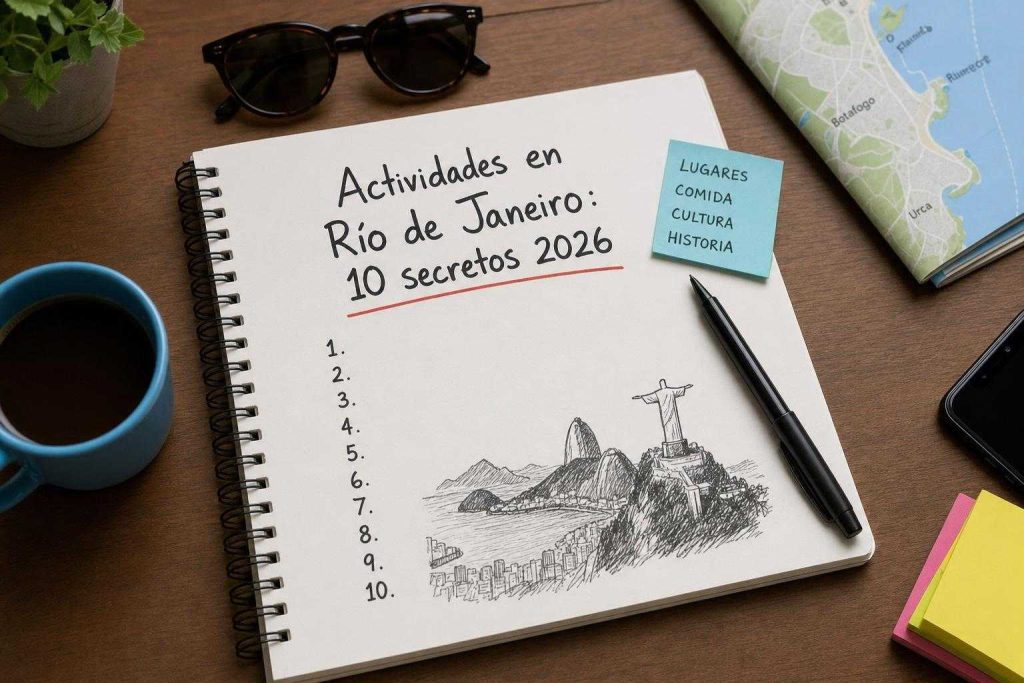 Actividades en
Río de Janeiro:
10 secretos 2026
LUGARES
COMIDA
CULTURA
HISTORIA
1.
2.
3.
4.
5.
6.
7.
8.
9.
10.
Botafogo
Urca